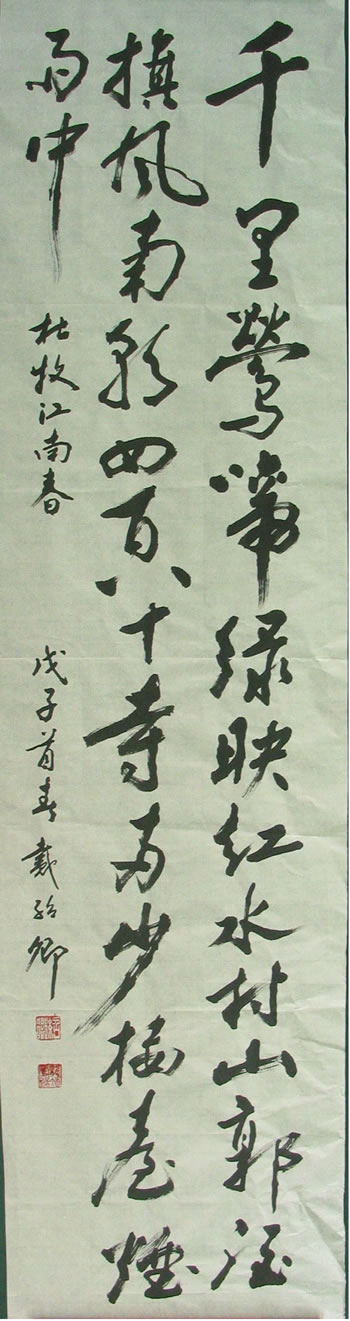 千里鶯啼绿映红水村山郭酒
旗风南朝四百八十寺多少楼臺煙
雨中
杜牧江南春
戊子首春戴卿